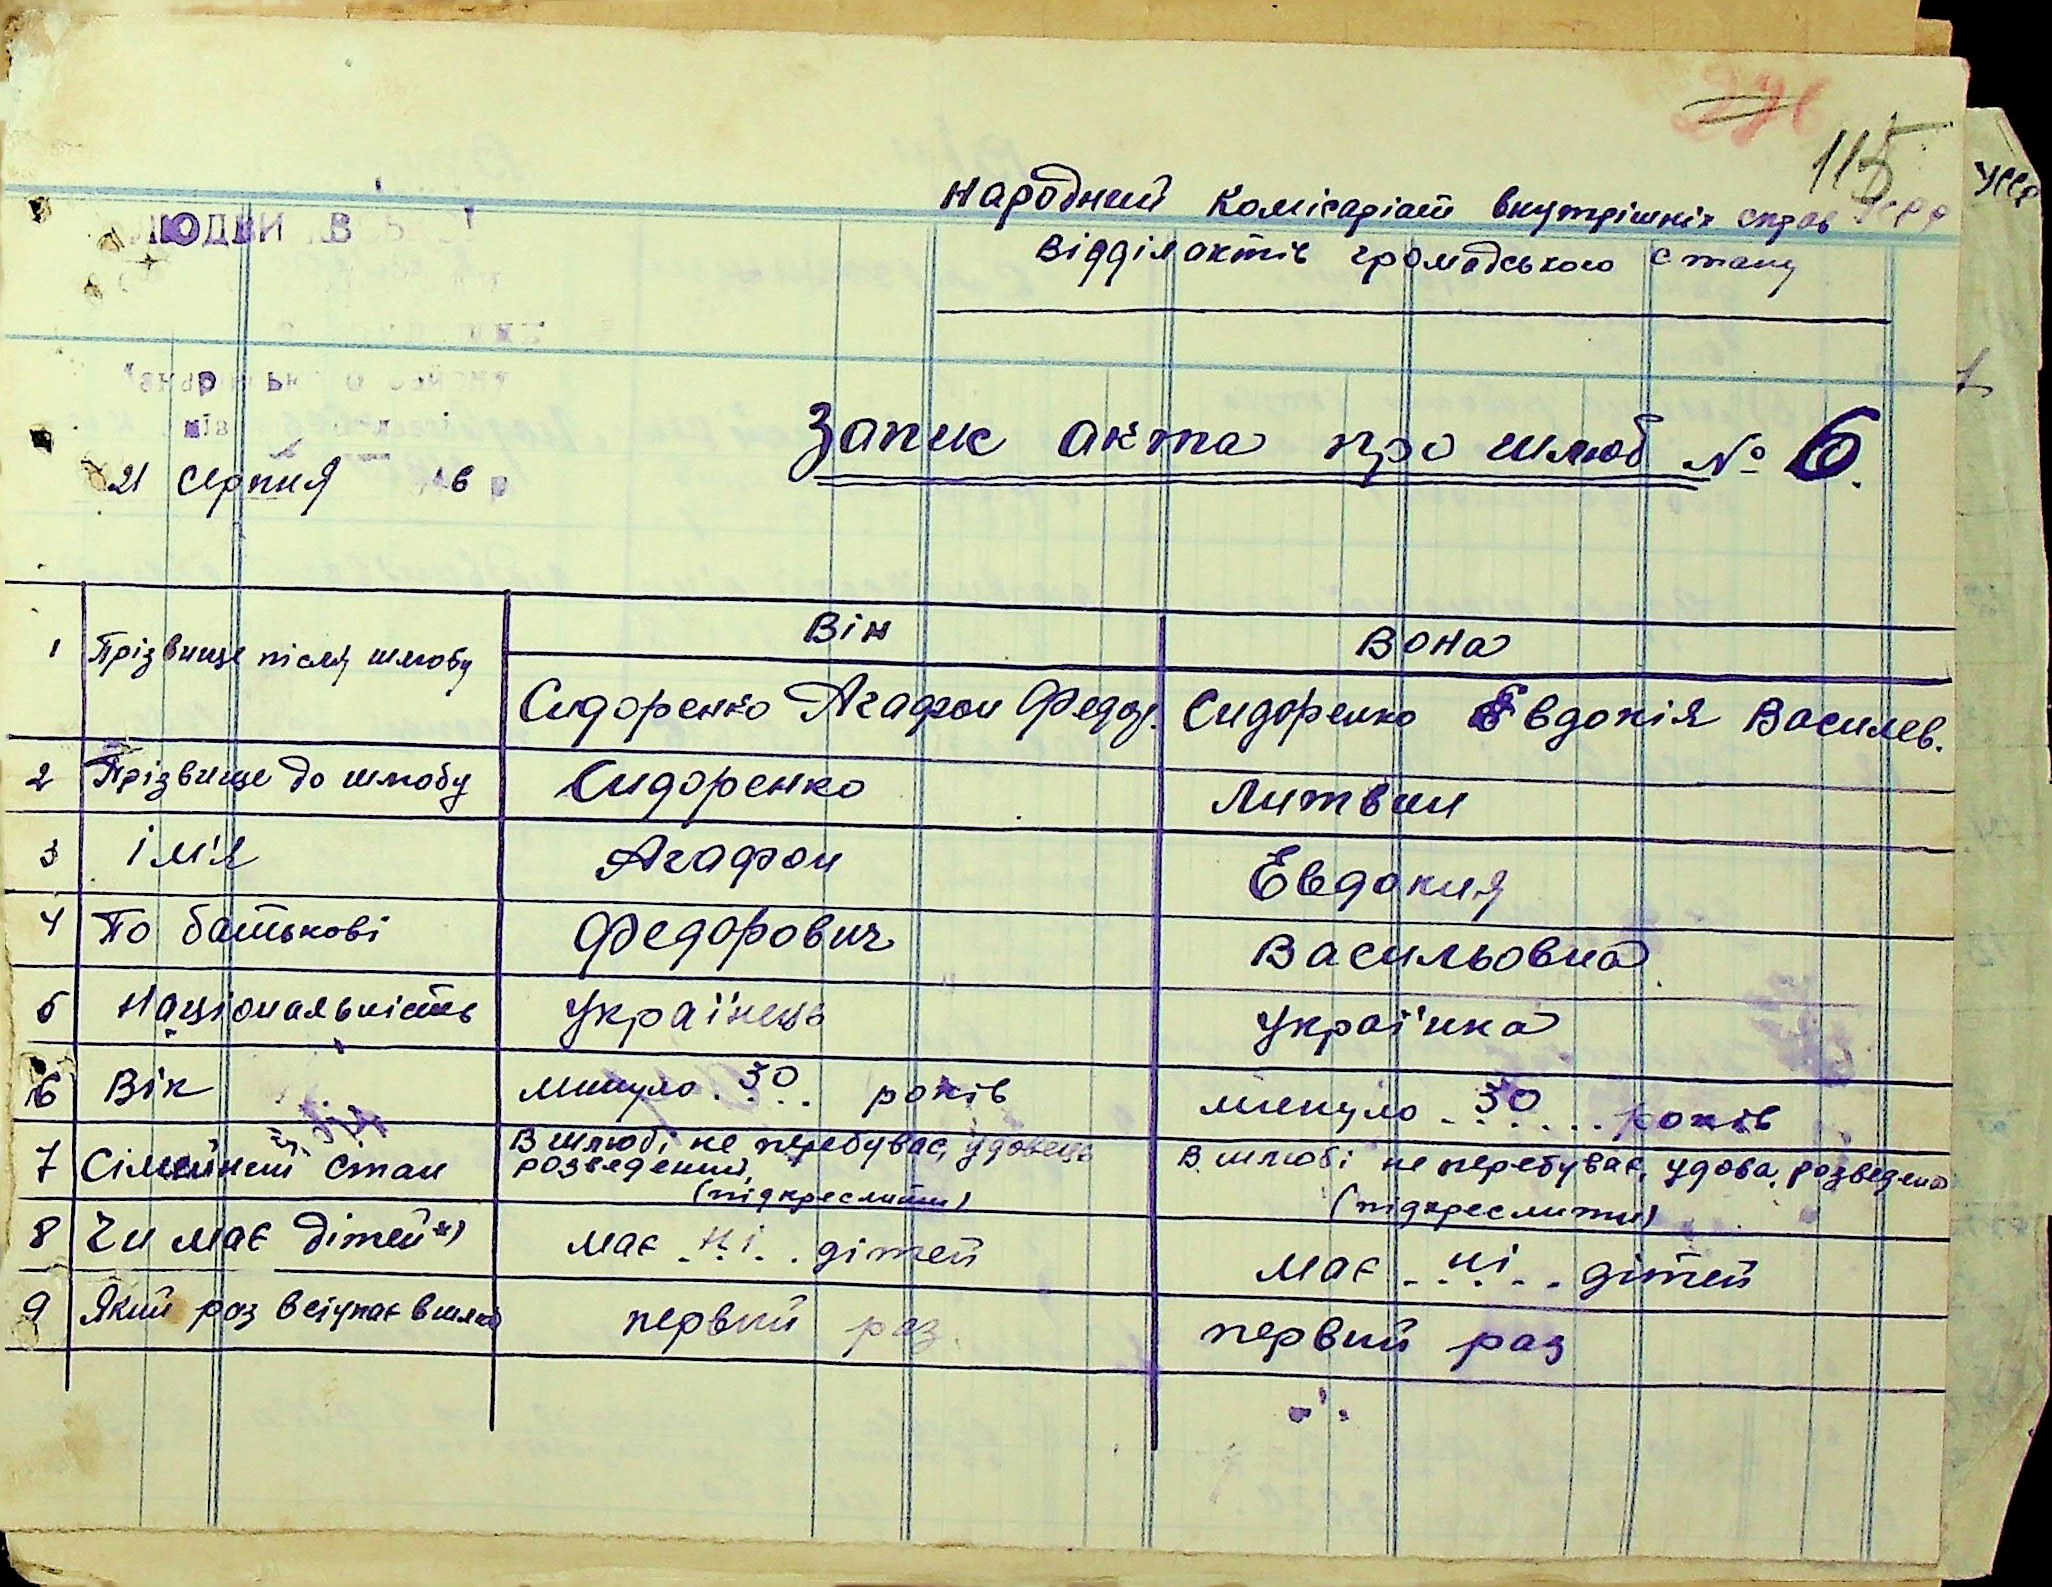 115
Народний Комісаріат внутрішніх справ УРСР
Відділ актів громадського стану
21 серпня 46 р
Запис акта про шлюб № 6.
Він Вона
1 Прізвище після шлюбу Сидоренко Агафон Федор. Сидоренко Евдокія Василев.
2 Прізвище до шлюбу Сидоренко Литвин
3 ім'я Агафон Евдокия
4 По батькові Федорович Васильовна
5 Національність Українець Украї'нка
6 Вік минуло 30 років минуло 30 років
7 Сімейний стан В шлюбі не перебуває, удовець В шлюбі не перебуває, удова, розведена
розведений,
(підкреслити) (підкреслити)
8 Чи має дітей*) має ні дітей має ні дітей
9 Який раз вступає в шлюб первий раз. первий раз